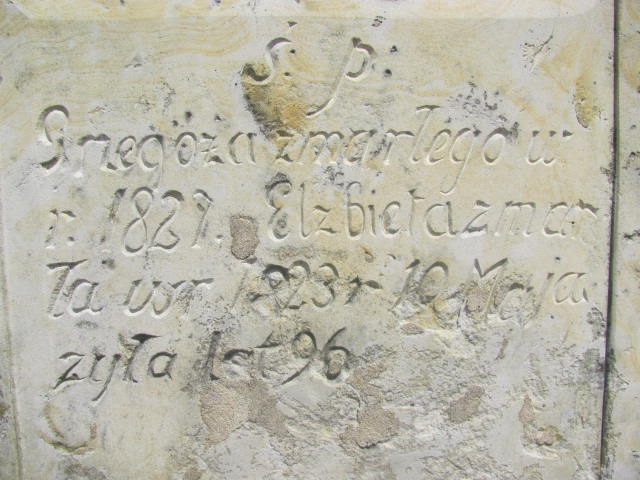 ś. p.
Grzegoża zmarłego w
r. 1827. Elzbieta zmar
ła w r 1823 r 10 Maja
zyła lat 96